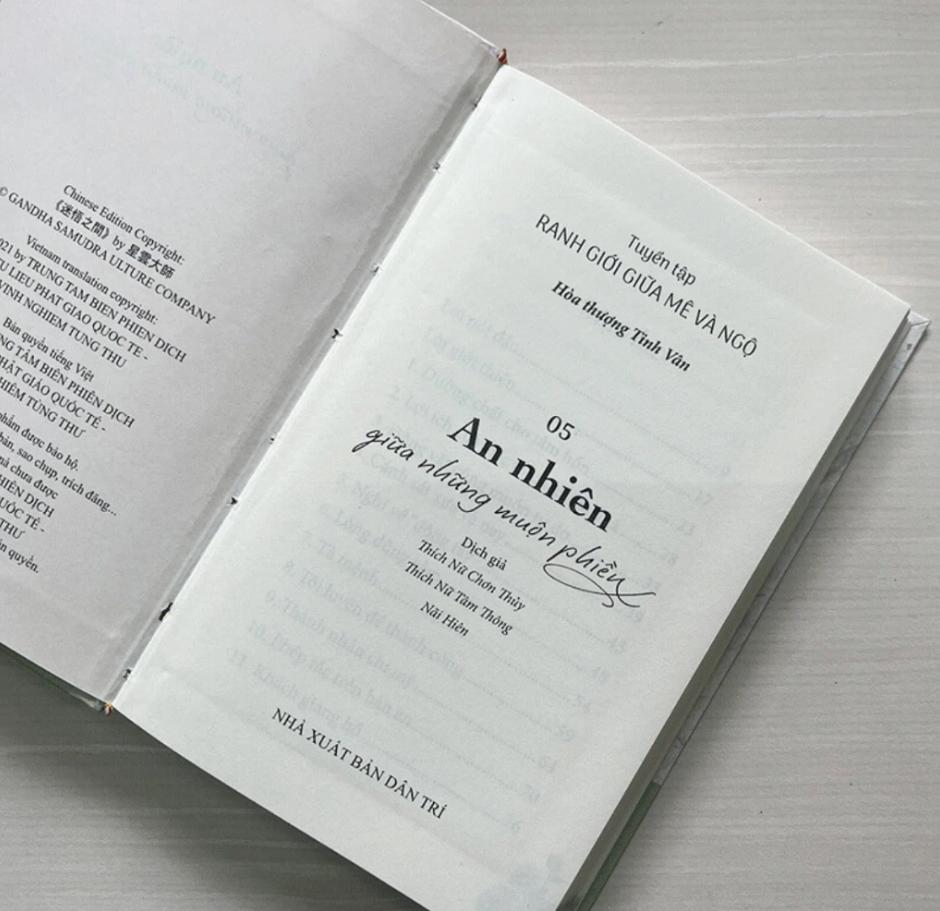 Chinese Edition Copyright:
《迷悟之間》 by 星雲大師
© GANDHA SAMUDRA ULTURE COMPANY
Vietnam translation copyright:
021 by TRUNG TAM BIEN PHIEN DICH
TU LIEU PHAT GIAO QUOC TE -
VINH NGHIEM TUNG THU
Bản quyền tiếng Việt
TÂM BIÊN PHIÊN DỊCH
PHẬT GIÁO QUỐC TẾ -
NGHIÊM TÙNG THƯ
phẩm được bảo hộ.
bản, sao chụp, trích đăng...
mà chưa được
PHIÊN DỊCH
QUỐC TẾ -
THƯ
quyền.
Tuyển tập
RANH GIỚI GIỮA MÊ VÀ NGỘ
Hòa thượng Tinh Vân
05
An nhiên
giữa những muộn phiền
Dịch giả
Thích Nữ Chơn Thủy
Thích Nữ Tâm Thông
Nãi Hiên
NHÀ XUẤT BẢN DÂN TRÍ